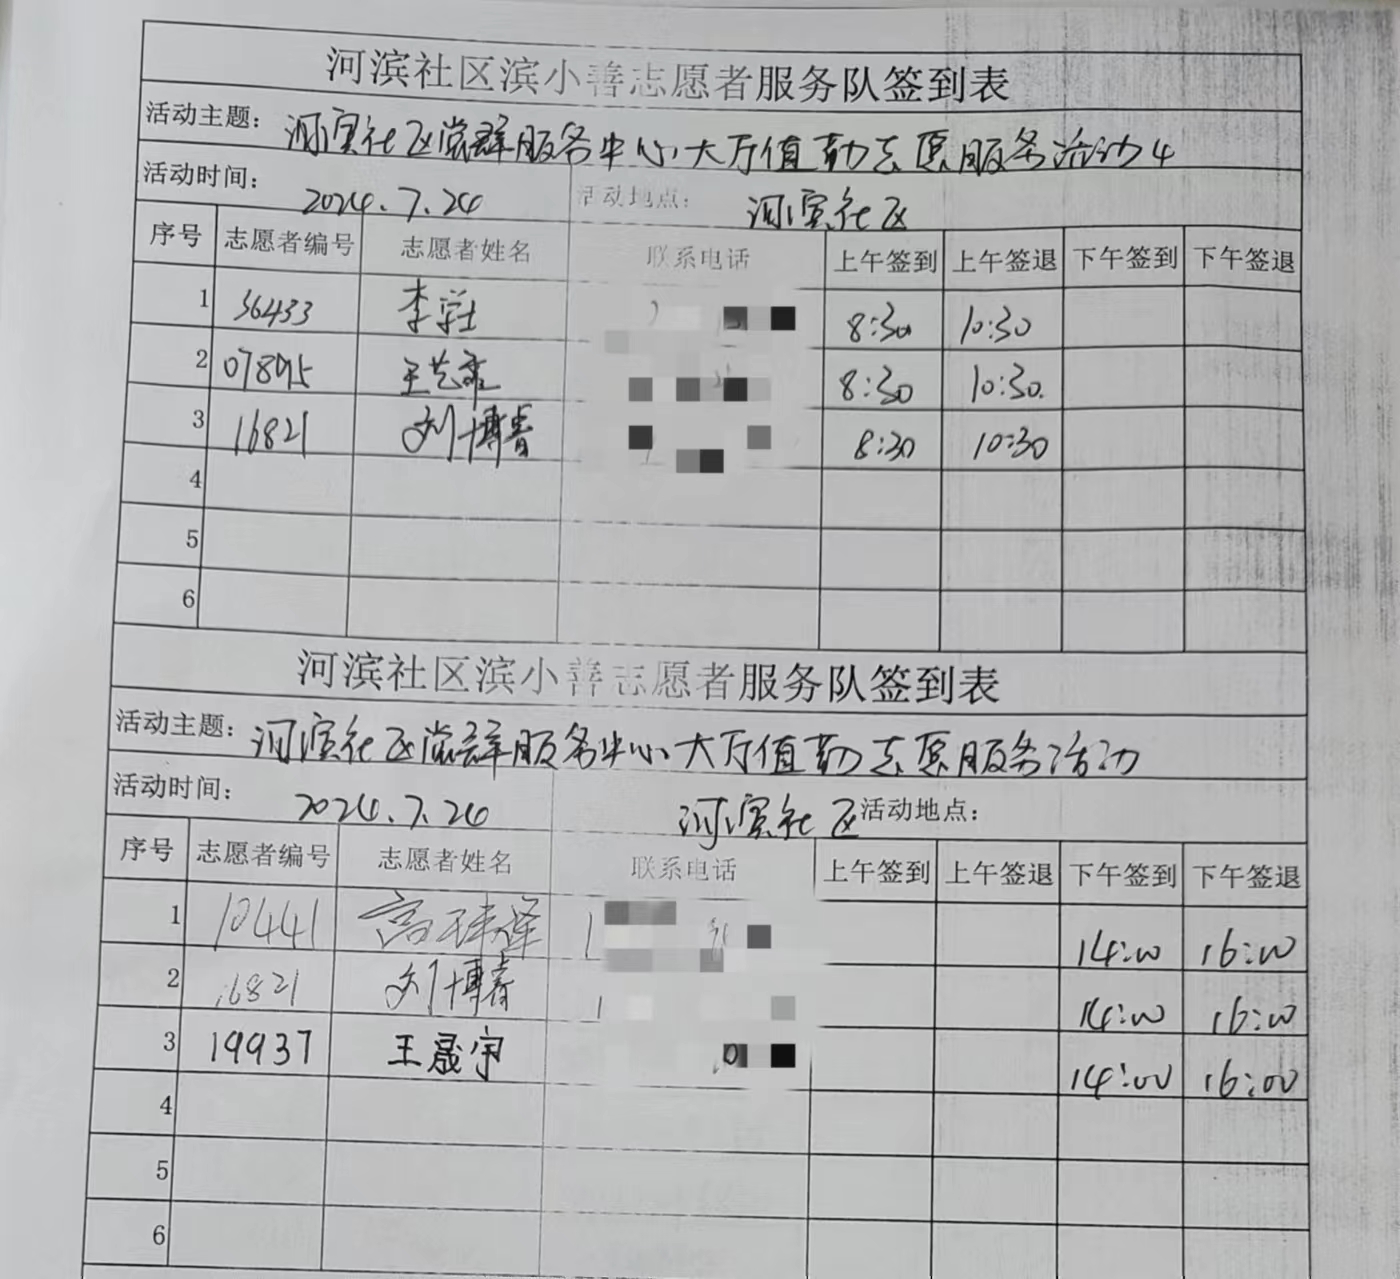 河滨社区滨小善志愿者服务队签到表
活动主题: 河滨社区党群服务中心大厅值勤志愿服务活动4
活动时间: 2024.7.24 活动地点: 河滨社区
序号 志愿者编号 志愿者姓名 联系电话 上午签到 上午签退 下午签到 下午签退
1 36433 8:30 10:30
2 07895 8:30 10:30.
3 16821 刘博睿 8:30 10:30
4
5
6
河滨社区滨小善志愿者服务队签到表
活动主题: 河滨社区党群服务中心大厅值勤志愿服务活动
活动时间: 2024.7.24 河滨社区 活动地点:
序号 志愿者编号 志愿者姓名 联系电话 上午签到 上午签退 下午签到 下午签退
1 10441 14:00 16:00
2 16821 刘博睿 14:00 16:00
3 19937 王晟宇 14:00 16:00
4
5
6